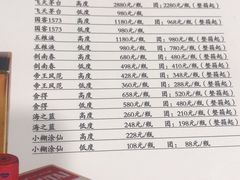 飞天茅台 高度 2880元/瓶 团:2280元/瓶(整箱起)
飞天茅台 低度 980元/瓶
国窖1573 高度 1180元/瓶 团:968元/瓶(整箱起)
国窖1573 低度 780元/瓶
五粮液 高度 1180元/瓶 团:980元/瓶(整箱起)
五粮液 低度 780元/瓶
剑南春 高度 498元/瓶 团:410元/瓶(整箱起)
帝王风范 高度 428元/瓶 团:348元/瓶(整箱起)
帝王风范 低度 360元/瓶 团:288元/瓶(整箱起)
舍得 高度 580元/瓶 团:520元/瓶(整箱起)
舍得 低度 520元/瓶 团:480元/瓶(整箱起)
海之蓝 高度 248元/瓶 团:198元/瓶(整箱起)
海之蓝 低度
小糊涂仙 高度 228元/瓶
小糊涂仙 低度 108元/瓶 团:88元/瓶